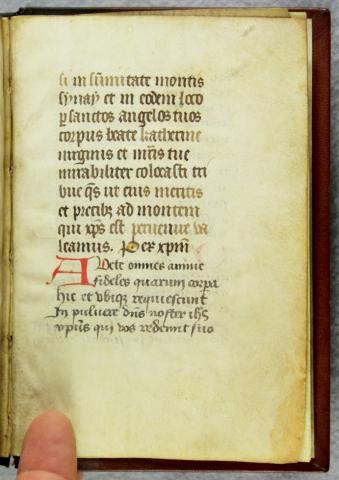 si in sūmitate montis
synay et in eodem loco
p sanctos angelos tuos
corpus beate katherine
virginis et mr̄is tue
mirabiliter colocasti tri
bue qs̄ ut eius meritis
et precibꝫ ad montem
qui xp̄s est peruenire va
leamus. Per xp̄m
Auete omnes anime
fideles quarum corpa
hic et ubiqꝫ requiescunt
In puluere dn̄s noster ih̄s
xp̄us qui vos redemit suo